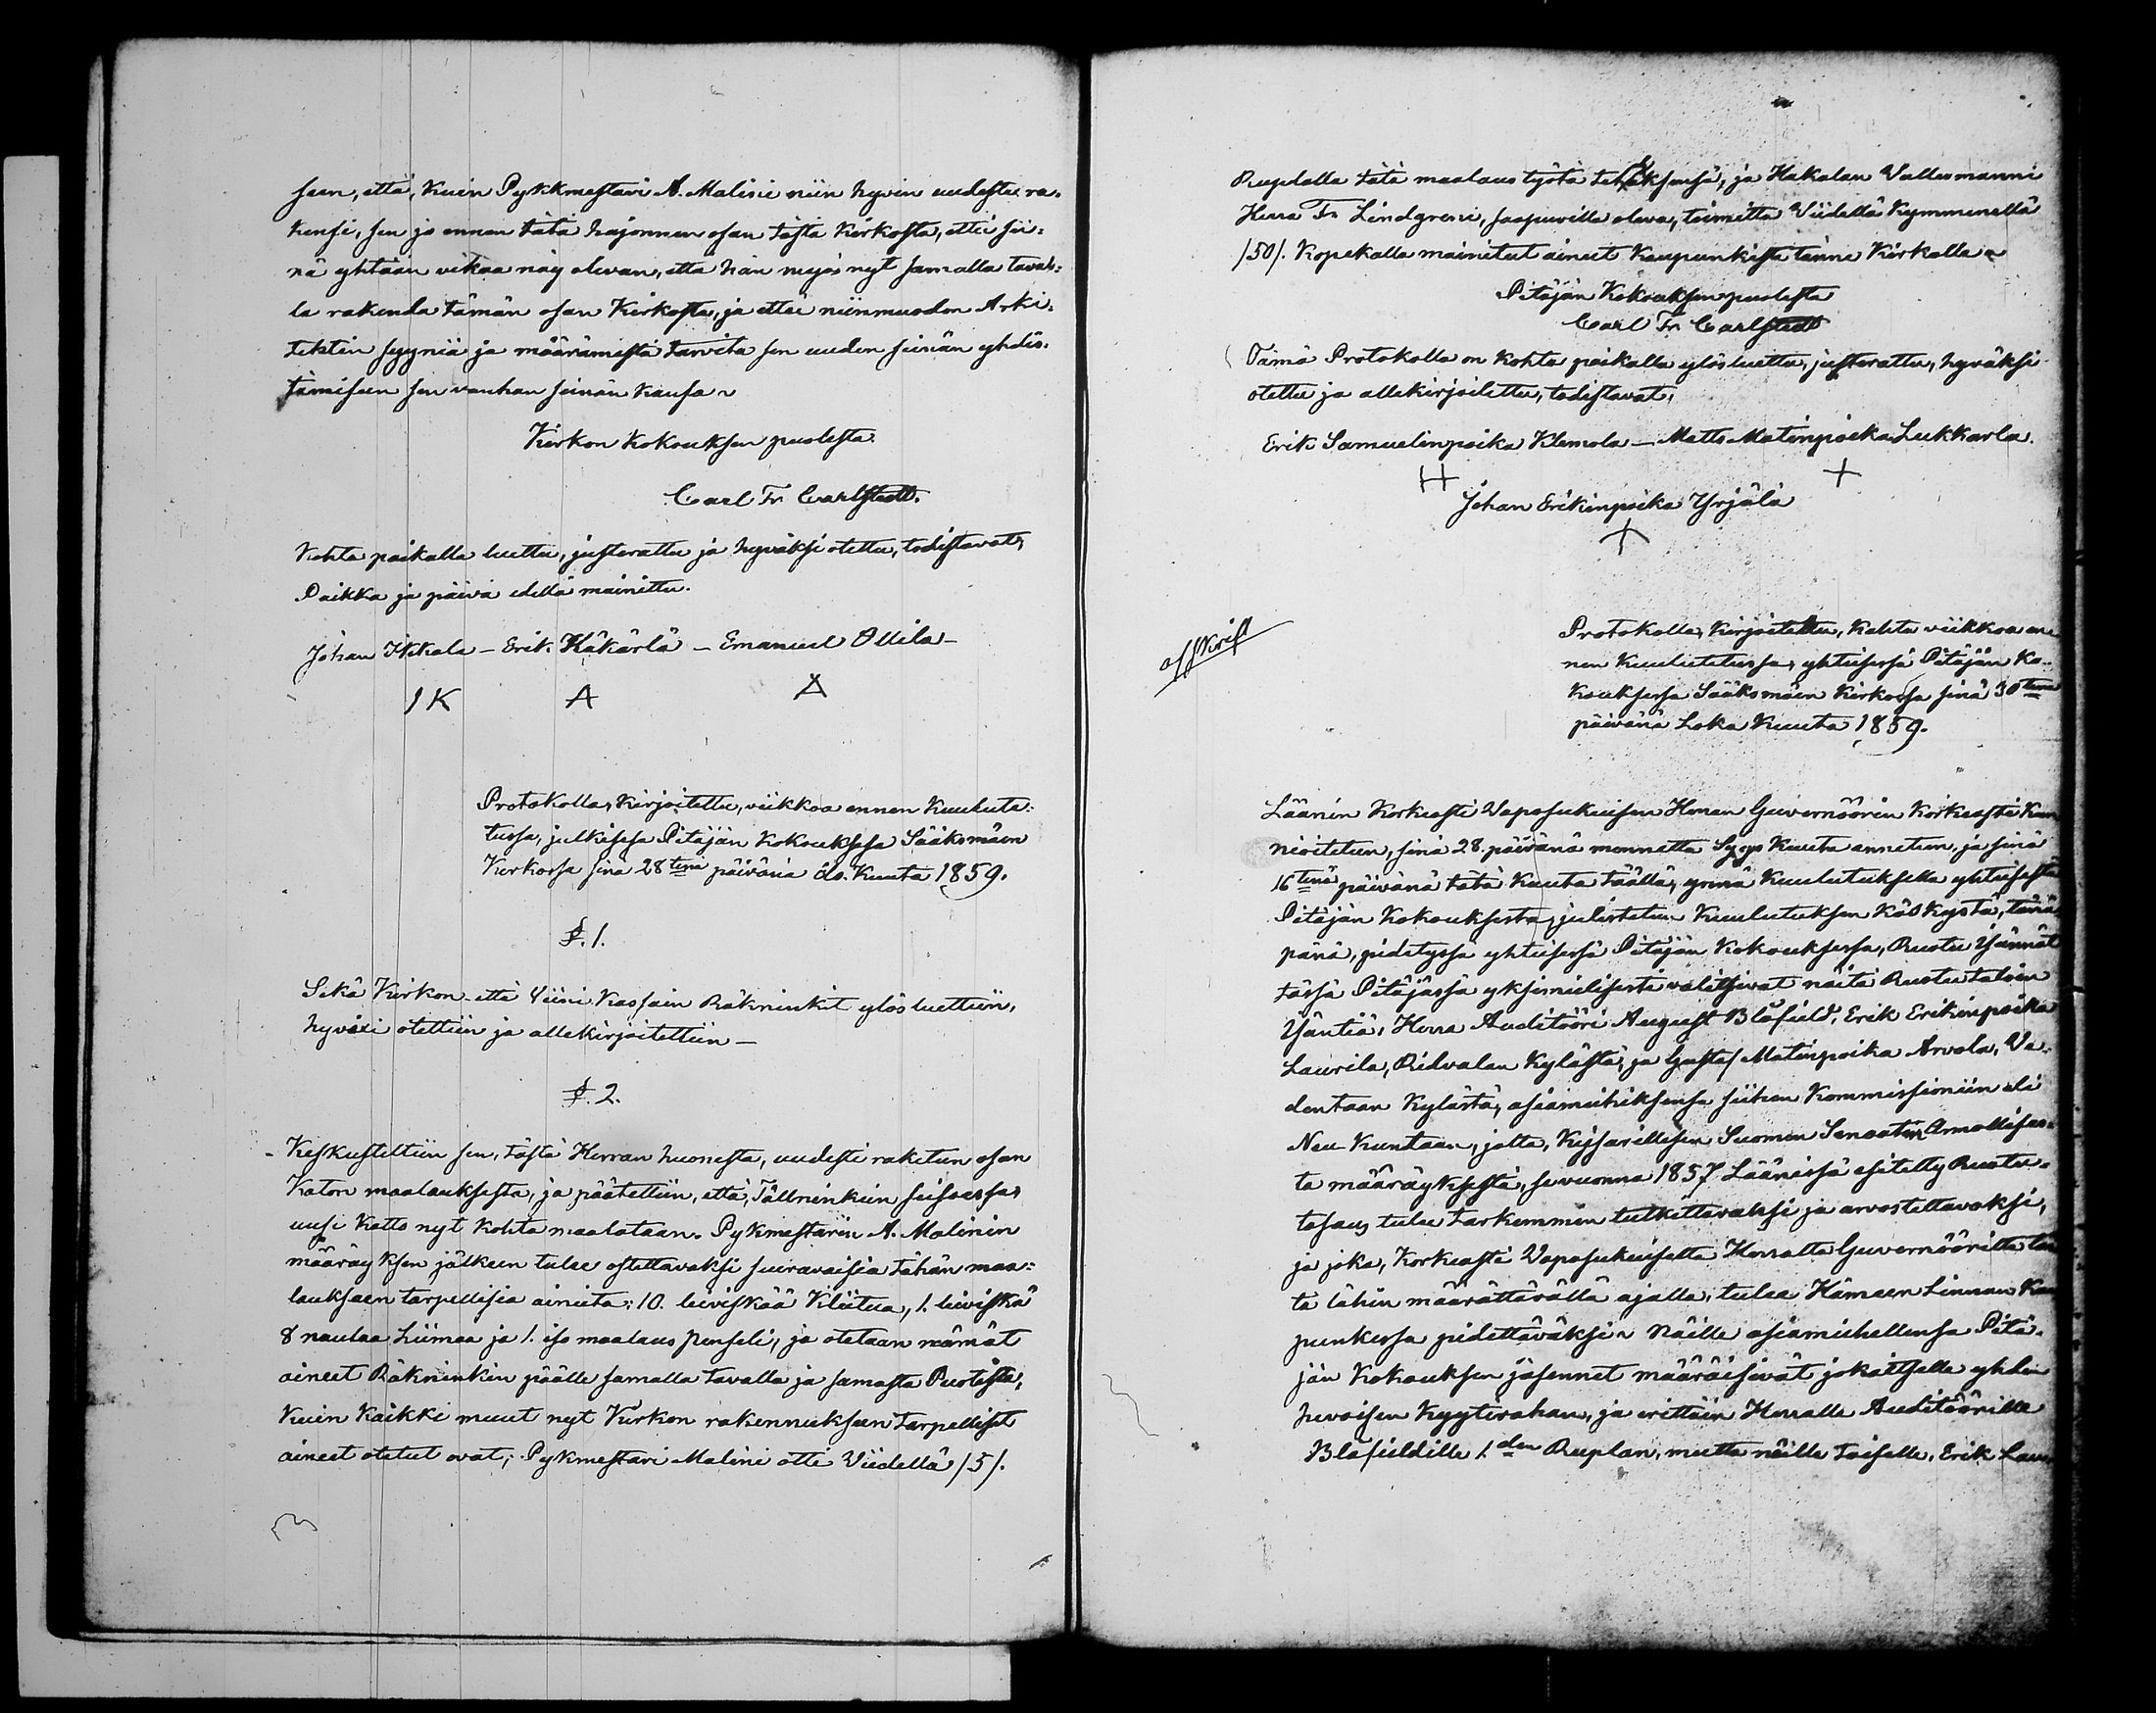 seen, että, kuin Pykkmestari A. Malini niin hyvin uudesta ra-
kensi, sen jo ennen tätä hajonnen osan tästä kirkosta, ettei sii-
nä yhtään vikaa näy olevan, että hän myös nyt samalla taval-
la rakenda tämän osan kirkosta, ja ettei niinmuodon Arki-
tektin syyniä ja määrämistä tarvita sen uuden seinän yhdis-
tämiseen sen vanhan seinän kansa
Kirkon Kokouksen puolesta
Carl Fr. Carlstedt.
Kohta paikalla luettu, justerattu ja hyväksi otettu, todistavat,
Paikka ja päivä edellä mainittu.
Johan Ikkala – Erik Käkärlä – Emanuel Ollila –
IK A A
Protokolla, Kirjoitettu, viikkoa ennen kuuluta-
tussa, julkisesa Pitäjän Kokouksesa Sääksmäen
Kirkossa sinä 28tenä päivänä elo. Kuuta 1859.
§. 1.
Sekä Kirkon- että Viini Kassain Räkninkit ylösluettiin,
hyväxi otettiin ja allekirjoitettiin –
§. 2.
Keskusteltiin sen, tästä Herran huonesta, uudesti raketun osan
Katon maalauksesta, ja päätettiin, että, Tällninkiin seisoessa,
uusi Katto nyt kohta maalataan. Pykmestarin A. Malinin
määräyksen jälkeen tulee ostettavaksi seuravaisia tähän maa-
lauksen tarpellisia aineita: 10. leiviskää Kliitua, 1. leiviskä
8 naulaa Liimaa ja 1. iso maalaus penseli, ja otetaan nämät
aineet Räkninkin päälle samalla tavalla ja samasta Puotista,
kuin kaikki muut nyt Kirkon rakennukseen tarpelliset
aineet otetut ovat; Pykmestari Malini otti Viidellä /5/.
Ruplalla tätä maalaus työtä tehdäksensä, ja Hakalan Vallesmanni
Herra Fr. Lindgreni, saapuvilla oleva, toimitta Viidellä kymmenellä
/50/. Kopekalla mainitut aineet Kaupunkista tänne Kirkolle
Pitäjän Kokouksen puolesta
Carl Fr. Carlstedt
Tämä Protokolla on kohta paikalla ylösluettu, justerattu, hyväksi
otettu ja allekirjoitettu, todistavat,
Erik Samuelinpoika Klemola – Matts Matinpoika Lukkarla.
H +
Johan Erikinpoika Yrjälä
+
Afskrift
Protokolla, kirjoitettu, kahta viikkoa en-
nen kuulutetussa, yhteisessä Pitäjän Ko-
kouksessa Sääksmäen Kirkossa sinä 30tenä
päivänä Loka Kuuta 1859.
Läänin Korkeasti Vapasukuisen Herran Guvernöörin Korkeasti Kun-
nioitetun, sinä 28. päivänä mennettä Syys Kuuta annetun, ja sinä
16tenä päivänä tätä Kuuta täällä, ynnä kuulutuksella yhteisestä
Pitäjän Kokouksesta, julistetun Kuulutuksen käskystä, tänä
pänä, pidetyssä yhteisessä Pitäjän Kokouksessa, Rustu Isännät
tässä Pitäjässä yksimielisesti valitsivat näitä Rustutaloin
Isäntiä, Herra Auditööri August Blåfield, Erik Erikinpoika
Laurila, Ridvalan Kylästä, ja Gustaf Matinpoika Arvola, Va-
dentaan Kylästä, asiamiehiksensä siihen Kommissioniin eli
Neu-Kuntaan, jolta, Keisarillisen Suomen Senaatin Armollises-
ta määräyksestä, se vuonna 1857 Läänissä esitelty Rustu-
tasaus tulee tarkemmin tutkittavaksi ja arvosteltavaksi,
ja joka, Korkeasti Vapasukuiselta Herralta Guvernööriltä
ta lähin määrättävällä ajalla, tulee Hämeen Linnan Kau-
punkissa pidettäväksi Näille asiamiehellensa Pitä-
jän Kokouksen jäsennet määräisivät jokaitselle yhden
hevoisen Kyytirahan, ja erittäin Herralle Auditöörille
Blåfieldille 1.den Ruplan, mutta näille toiselle, Erik Lau-